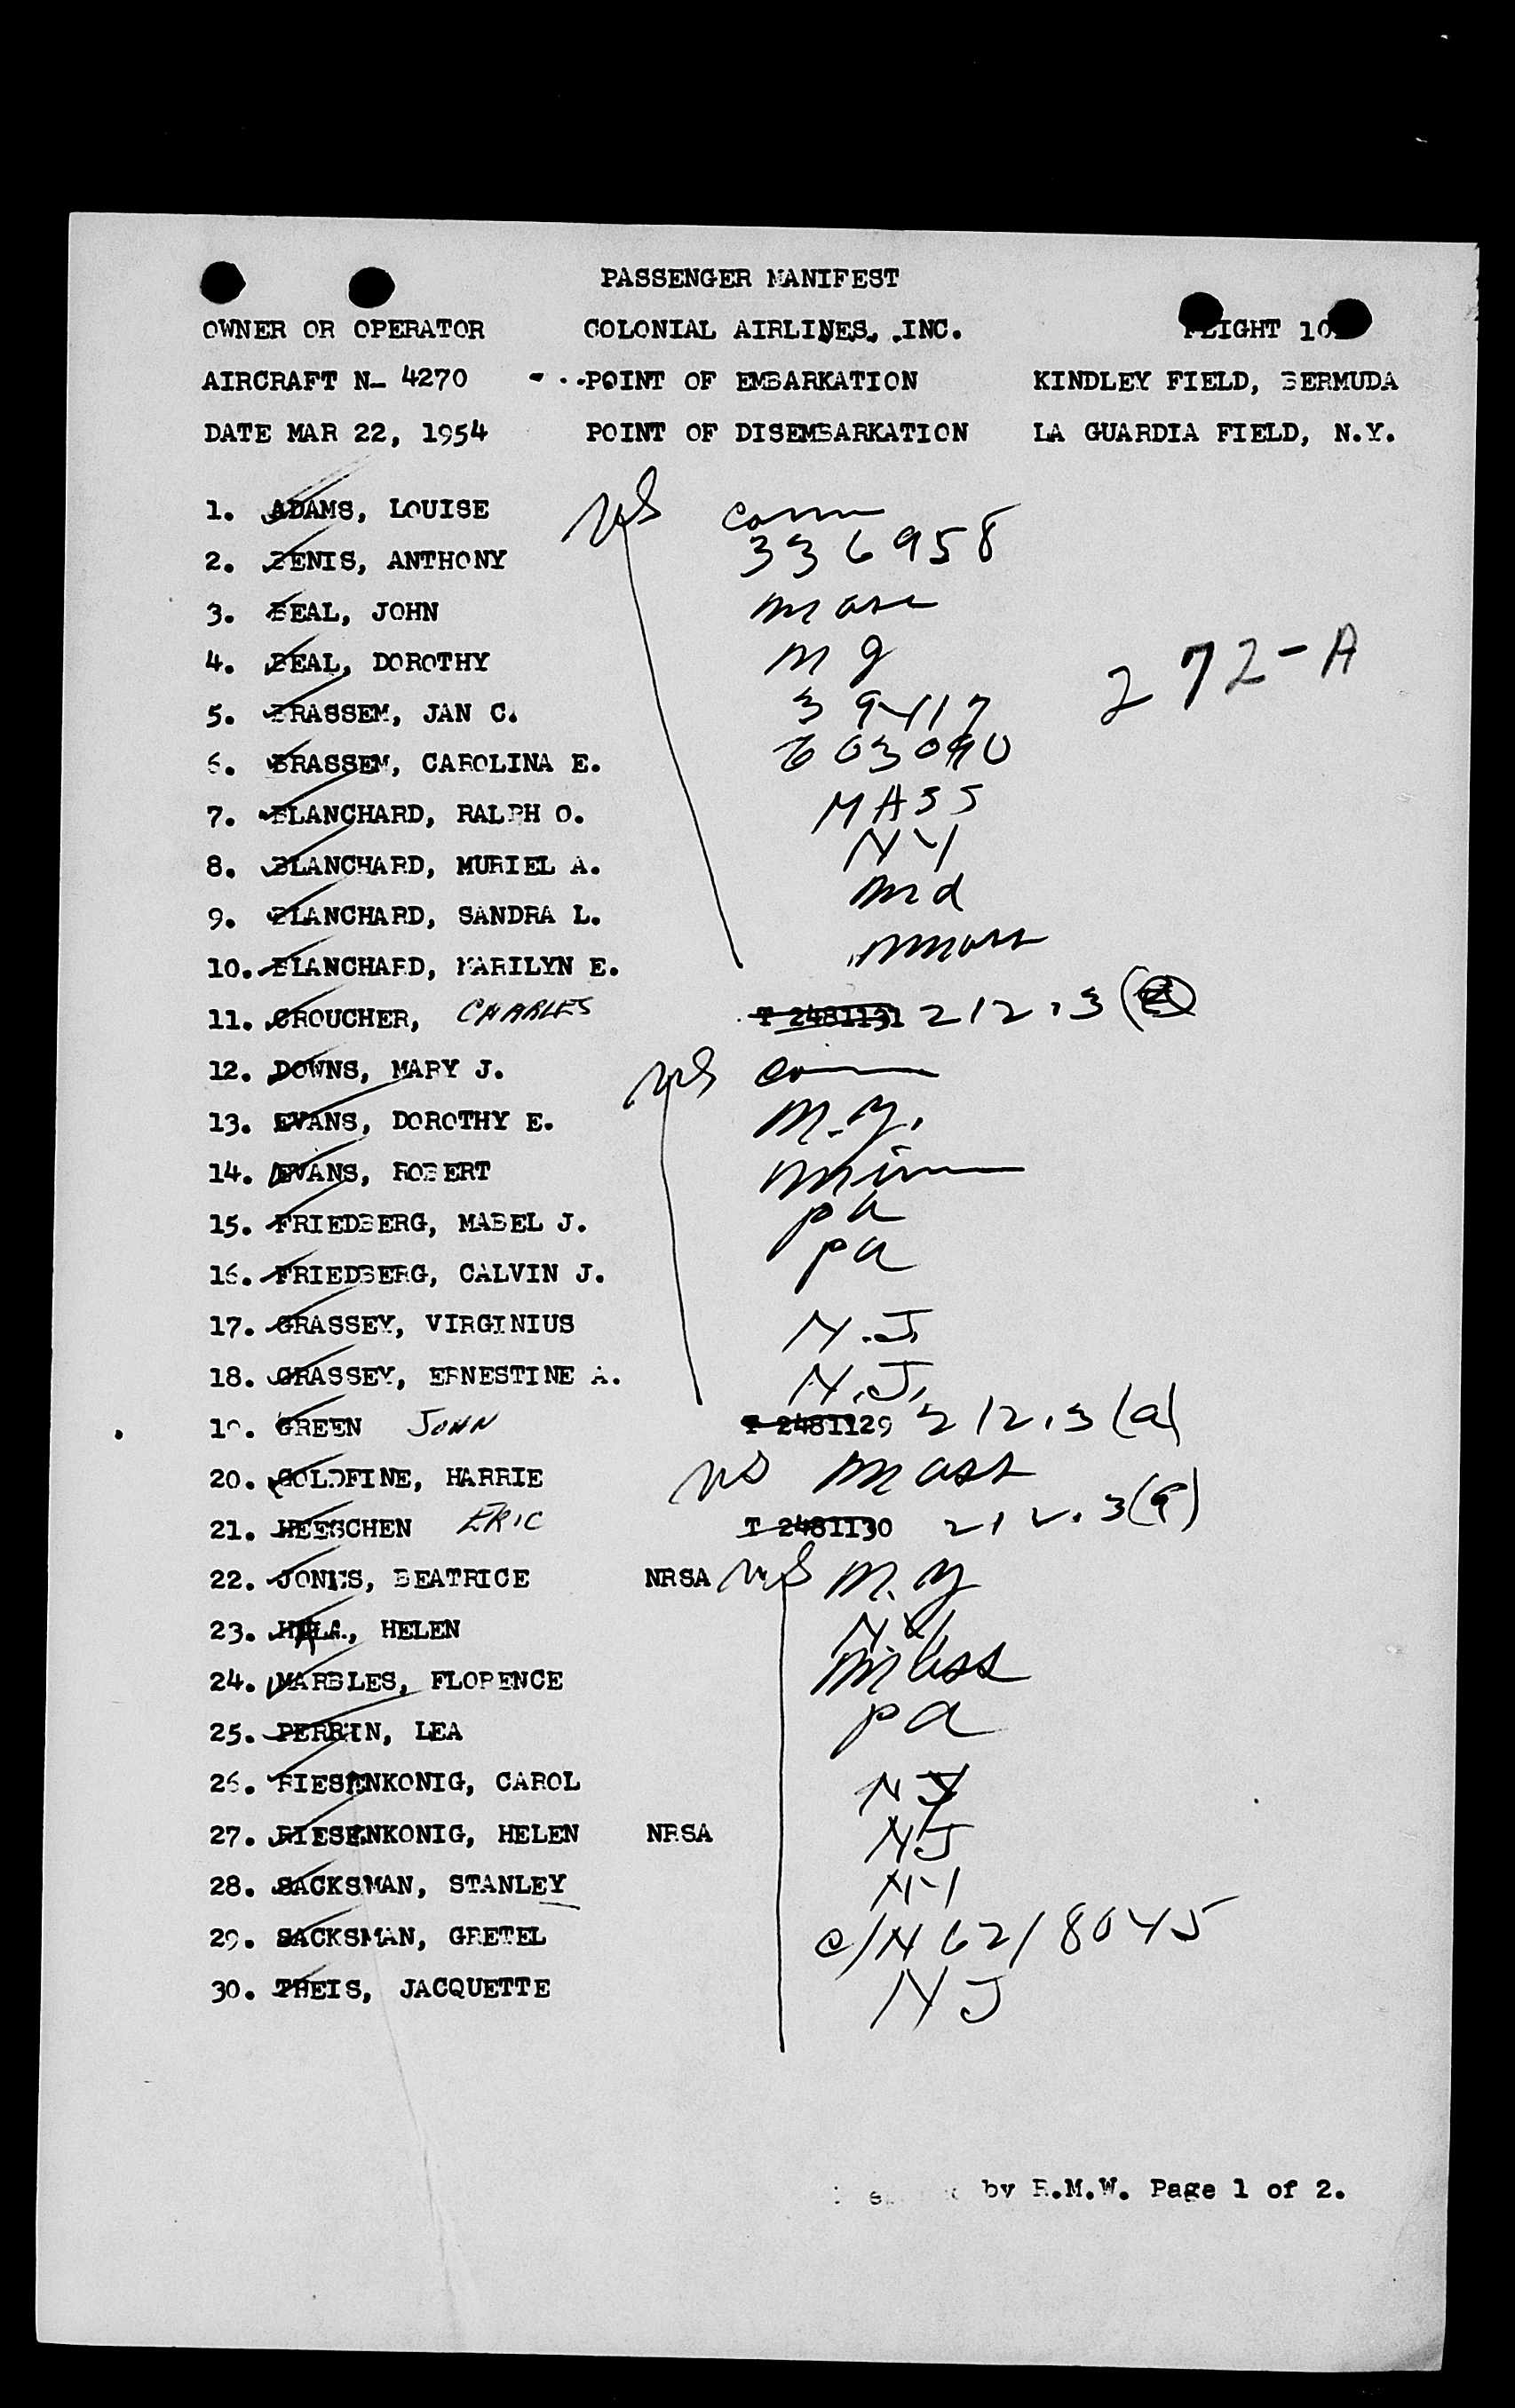 PASSENGER MANIFEST
OWNER OR OPERATOR COLONIAL AIRLINES, INC. FLIGHT 10
AIRCRAFT N- 4270 POINT OF EMBARKATION KINDLEY FIELD, BERMUDA
DATE MAR 22, 1954 POINT OF DISEMBARKATION LA GUARDIA FIELD, N.Y.
1. ADAMS, LOUISE US Conn
2. BENIS, ANTHONY 336958
3. BEAL, JOHN Mass
4. BEAL, DOROTHY
272-A
5. BRASSEM, JAN C.
6. BRASSEM, CAROLINA E.
7. BLANCHARD, RALPH O. MASS
8. BLANCHARD, MURIEL A. NY
9. BLANCHARD, SANDRA L. Md
10. BLANCHARD, MARILYN E. Mass
11. CROUCHER, CHARLES T 2481131 212.3
12. DOWNS, MARY J. US Conn
13. EVANS, DOROTHY E. N.Y.
14. EVANS, ROBERT Minn
15. FRIEDBERG, MABEL J. Pa
16. FRIEDBERG, CALVIN J. Pa
17. GRASSEY, VIRGINIUS N.J.
18. GRASSEY, ERNESTINE A. N.J.
19. GREEN JOHN T 2481129 212.3(a)
20. GOLDFINE, HARRIE US Mass
21. HEESCHEN ERIC T 2481130 212.3(a)
22. JONES, BEATRICE NRSA US N.Y
23. HELEN NY
24. MARBLES, FLORENCE Mass
25. PERRIN, LEA Pa
26. RIESENKONIG, CAROL NJ
27. RIESENKONIG, HELEN NRSA NJ
28. SACKSMAN, STANLEY NY
29. SACKSMAN, GRETEL C/N 6218045
30. THEIS, JACQUETTE NJ
by R.M.W. Page 1 of 2.